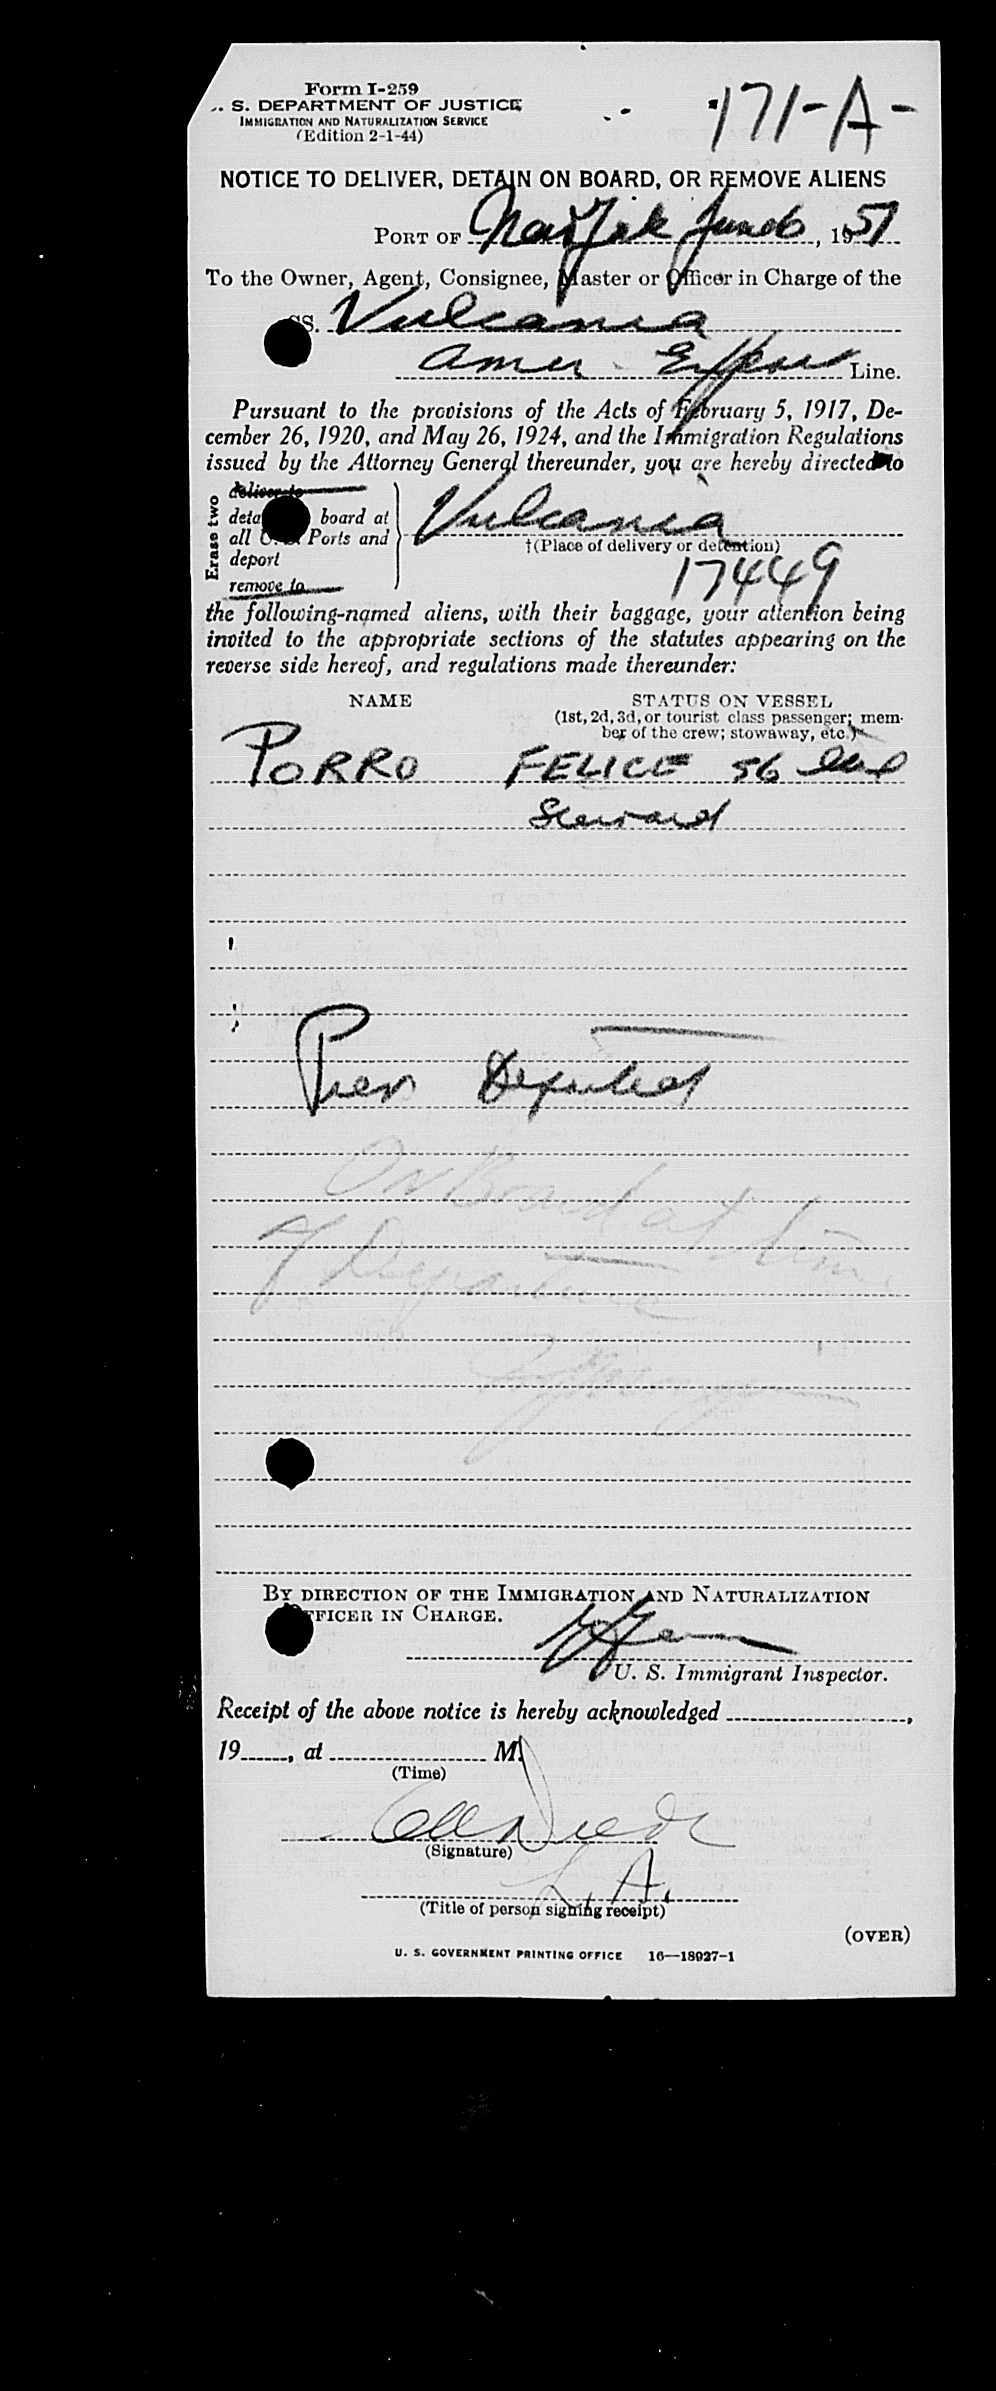 Form I-259
. S. DEPARTMENT OF JUSTICE
IMMIGRATION AND NATURALIZATION SERVICE
(Edition 2-1-44)
171-A-
NOTICE TO DELIVER, DETAIN ON BOARD, OR REMOVE ALIENS
PORT OF New York June 6, 1951
To the Owner, Agent, Consignee, Master or Officer in Charge of the
SS. Vulcania
Amer Export Line.
Pursuant to the provisions of the Acts of February 5, 1917, De-
cember 26, 1920, and May 26, 1924, and the Immigration Regulations
issued by the Attorney General thereunder, you are hereby directed to
Erase two
deliver to
deta board at
all U.S. Ports and
deport
remove to
Vulcania
†(Place of delivery or detention)
17449
the following-named aliens, with their baggage, your attention being
invited to the appropriate sections of the statutes appearing on the
reverse side hereof, and regulations made thereunder:
NAME STATUS ON VESSEL
(1st, 2d, 3d, or tourist class passenger; mem-
ber of the crew; stowaway, etc.)
PORRO FELICE 56
Steward
Prev Deported
On Board at time
of Departure
BY DIRECTION OF THE IMMIGRATION AND NATURALIZATION
OFFICER IN CHARGE.
U. S. Immigrant Inspector.
Receipt of the above notice is hereby acknowledged ,
19 , at M.
(Time)
(Signature)
L. A.
(Title of person signing receipt)
(OVER)
U. S. GOVERNMENT PRINTING OFFICE 16—18927-1